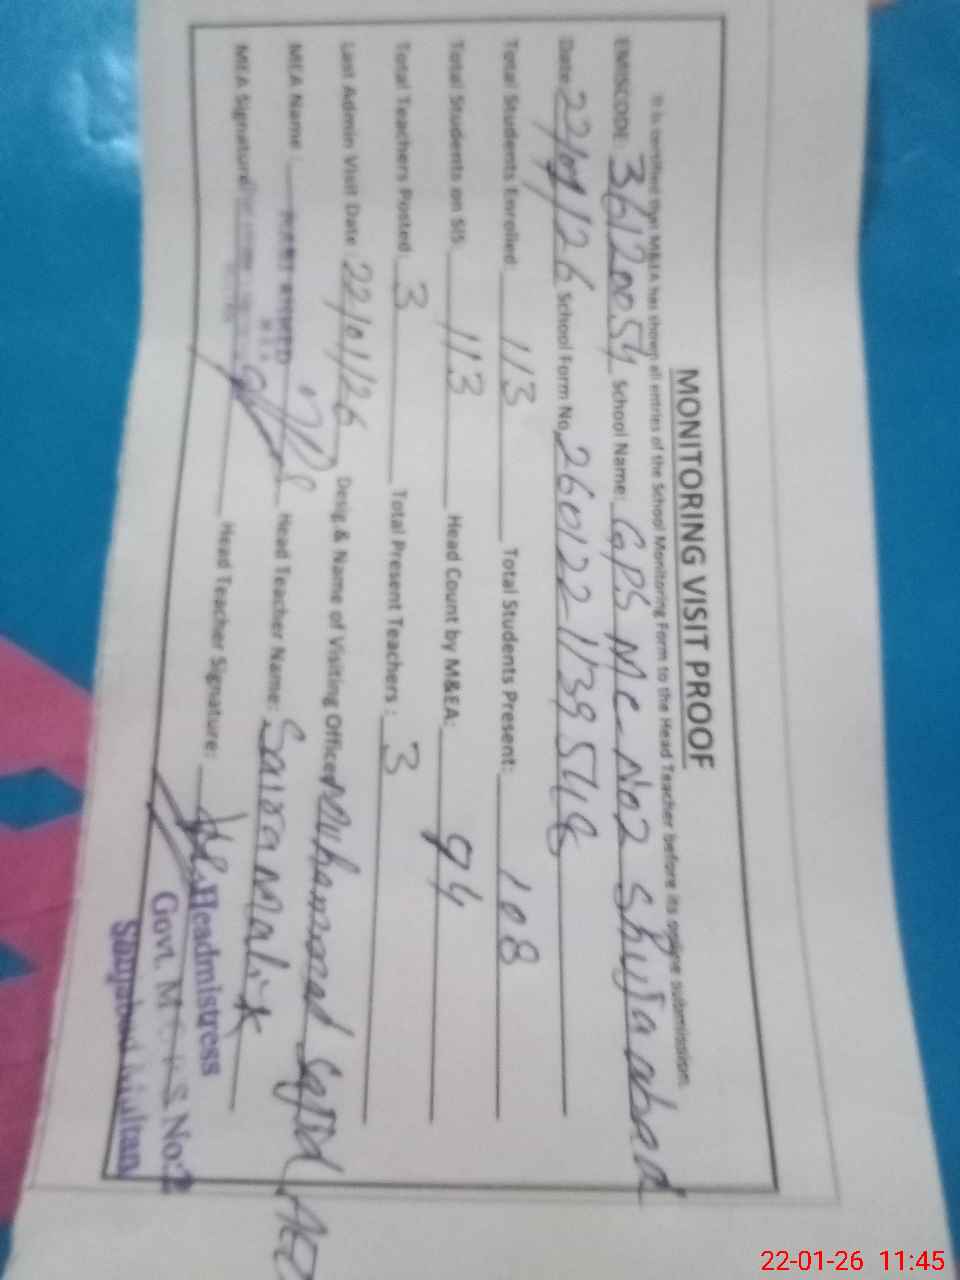 MONITORING VISIT PROOF
It is certified that M&EA has shown all entries of the School Monitoring Form to the Head Teacher before its online submission.
EMISCODE: 36120054 School Name: GPS MC No2 Shujaabad
Date: 22/01/26 School Form No. 260122-1139548
Total Students Enrolled: 113 Total Students Present: 108
Total Students on SIS: 113 Head Count by M&EA: 94
Total Teachers Posted: 3 Total Present Teachers: 3
Last Admin Visit Date 22/01/26 Desig.& Name of Visiting Officer Muhammad Sajjid AEO
MEA Name: Head Teacher Name: Saira Malik
MEA Signature Head Teacher Signature:
Headmistress
Govt. M No:2
Shujabad Multan
22-01-26 11:45